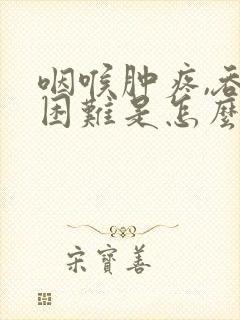 咽喉肿疼,吞
困難是怎麼
宋寶善